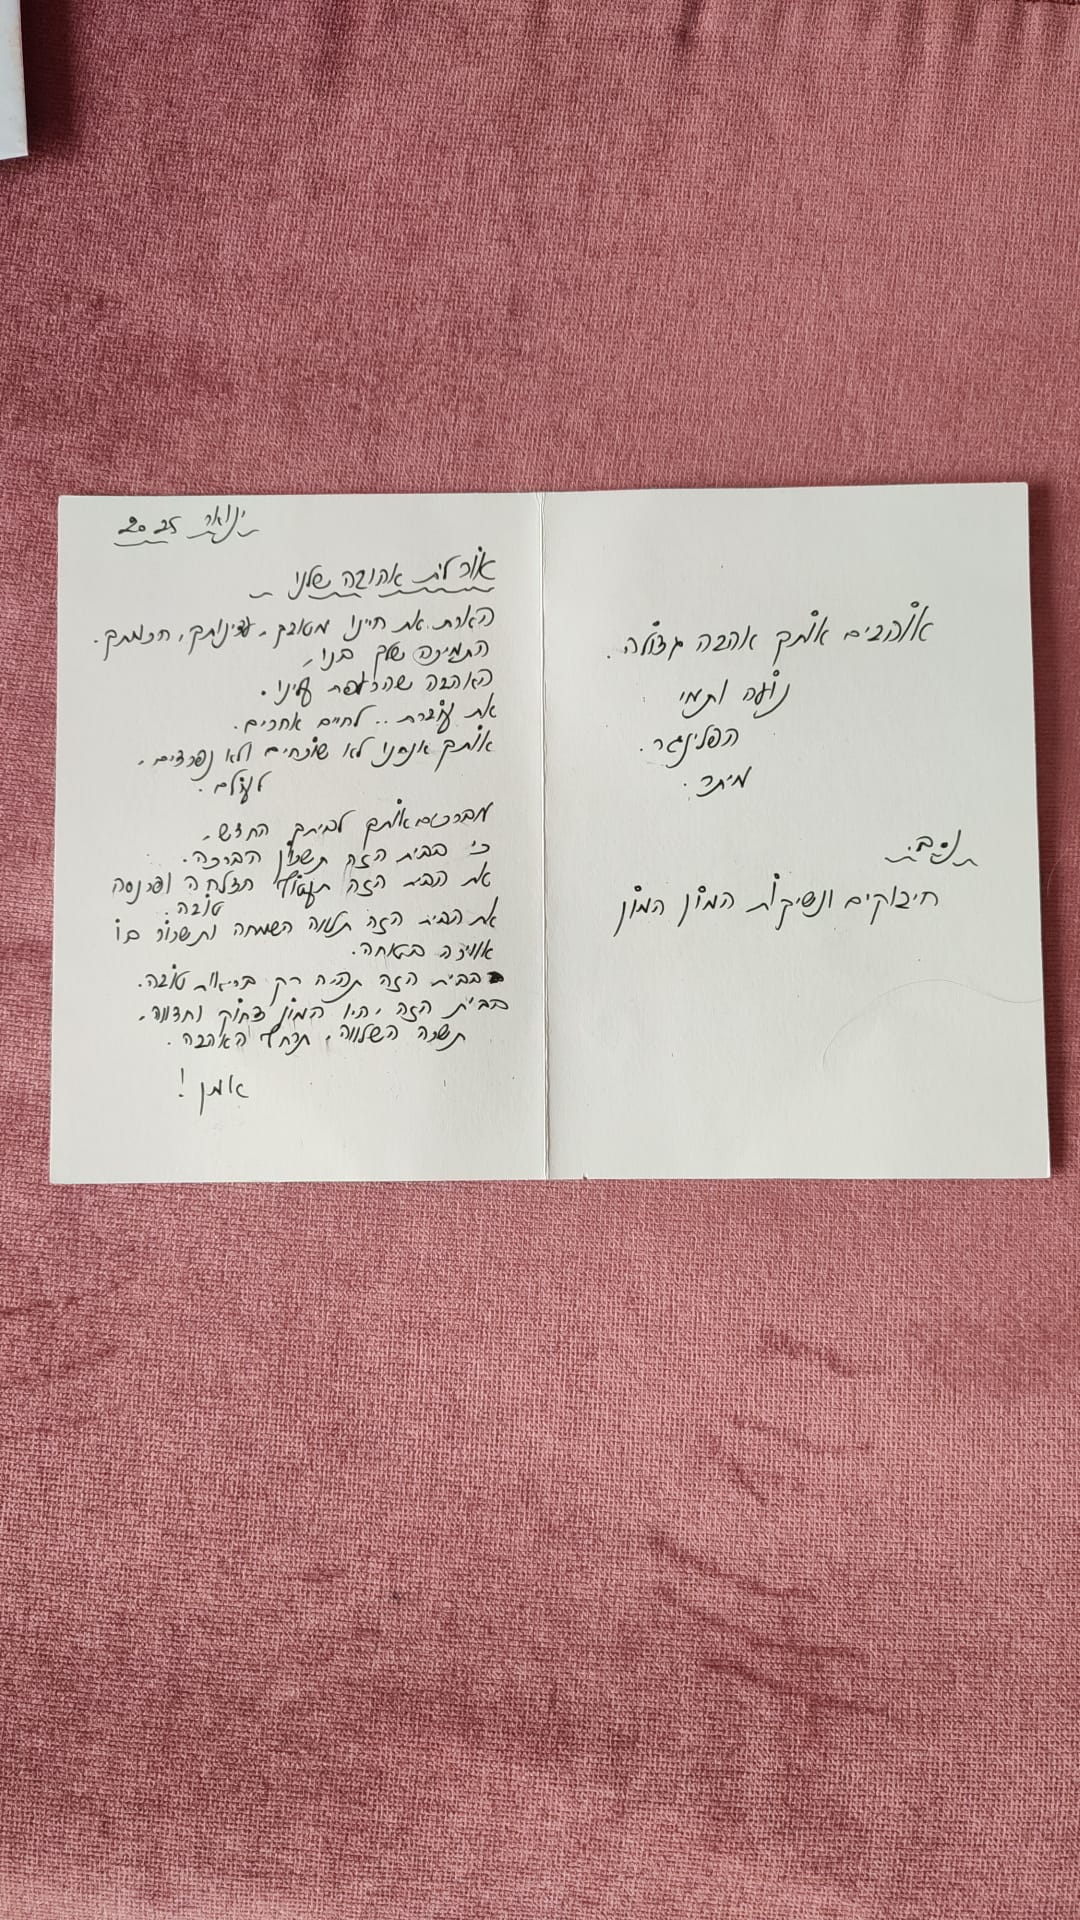 ינואר 2025
אורלית אהובה שלנו
הארת את חיינו מטובך, עדינותך, חכמתך.
התמיכה שלך בנו,
האהבה שהרעפת עלינו.
את עוברת.. לחיים אחרים.
אותך אנחנו לא שוכחים ולא נפרדים,
לעולם.
מברכים אותך לביתך החדש,
כי בבית הזה תשכון הברכה.
את הבית הזה תעטוף הצלחה ופרנסה
טובה.
את הבית הזה תלווה השמחה ותשרור בו
אווירה בטוחה.
בבית הזה תהיה רק בריאות טובה.
בבית הזה יהיו המון צחוק וחדווה,
תשרה השלווה, תרחף האהבה.
אמן!
אוהבים אותך אהבה גדולה.
נועה ותמי
הפלינגר.
מיתר.
נ.ב.
חיבוקים ונשיקות המון המון